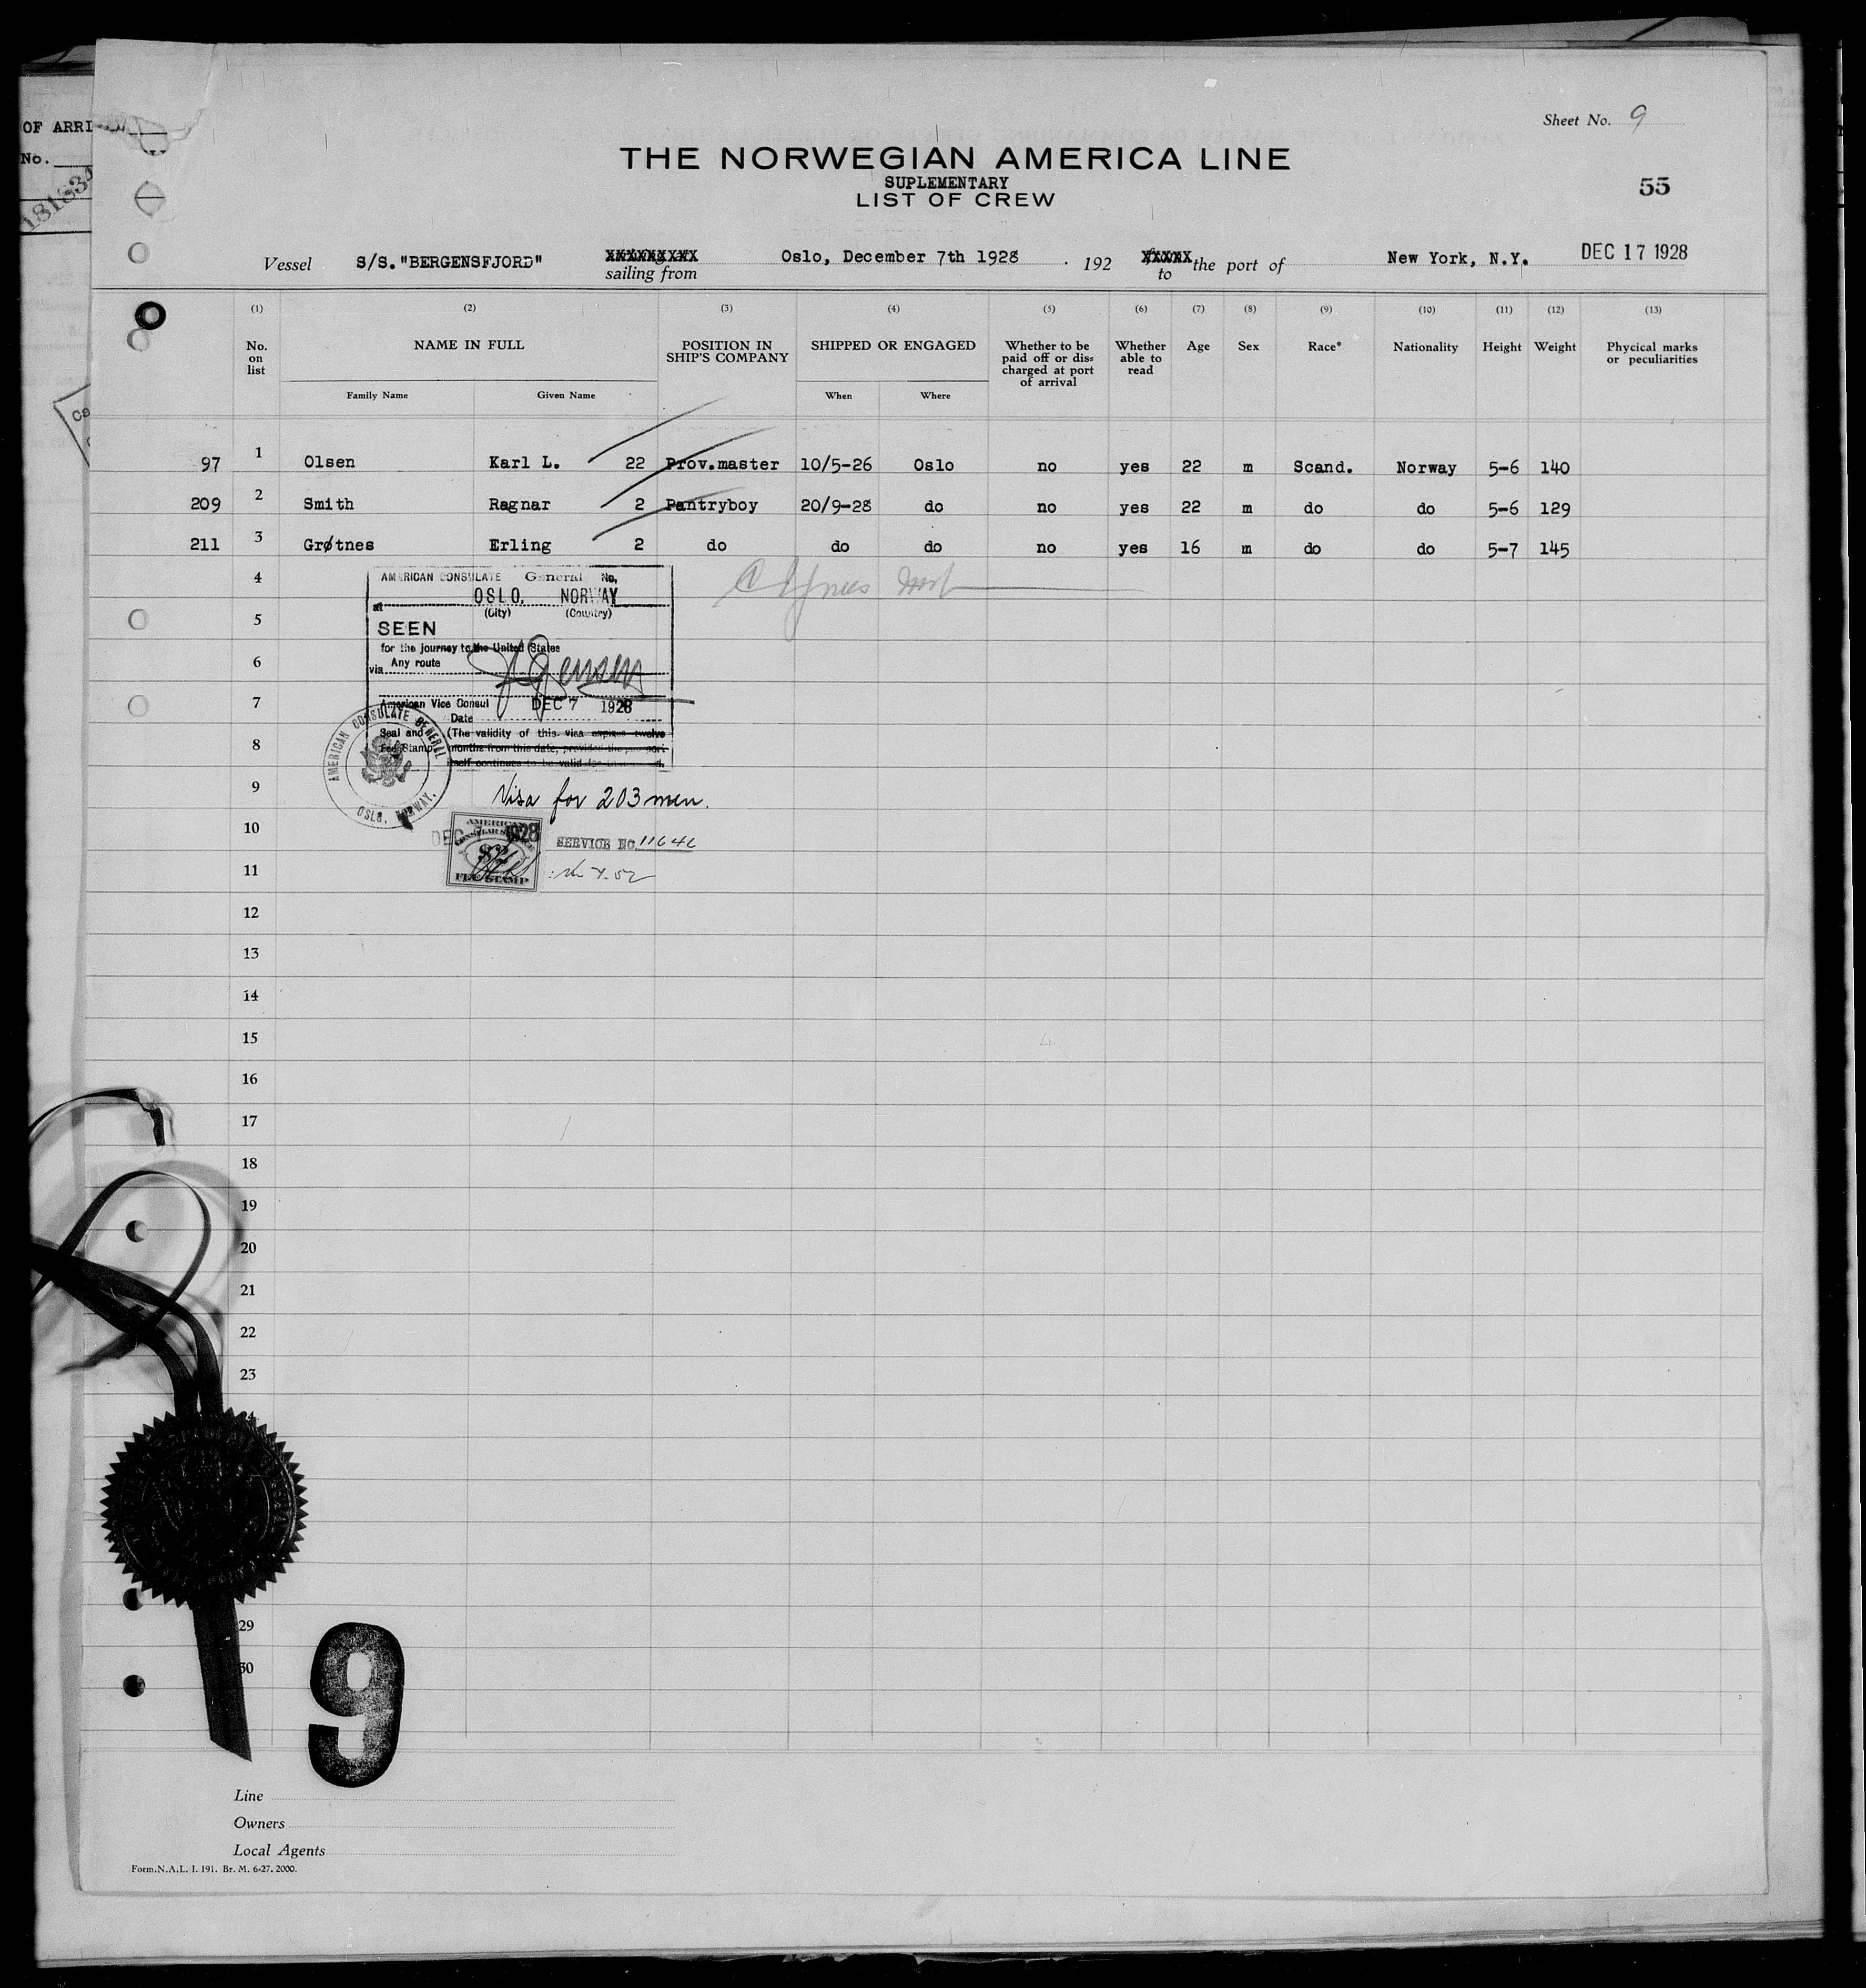 OF ARRI
No.
181834
Sheet No. 9
THE NORWEGIAN AMERICA LINE
SUPLEMENTARY
LIST OF CREW
55
Vessel S/S."BERGENSFJORD" XXXXXXXXX sailing from Oslo, December 7th 1928 . 192 XXXXX to the port of New York, N.Y. DEC 17 1928
(1) (2) (3) (4) (5) (6) (7) (8) (9) (10) (11) (12) (13)
No. on list NAME IN FULL POSITION IN SHIP'S COMPANY SHIPPED OR ENGAGED Whether to be paid off or dis= charged at port of arrival Whether able to read Age Sex Race* Nationality Height Weight Phycical marks or peculiarities
Family Name Given Name When Where
97 1 Olsen Karl L. 22 Prov.master 10/5-26 Oslo no yes 22 m Scand. Norway 5-6 140
209 2 Smith Ragnar 2 Pantryboy 20/9-28 do no yes 22 m do do 5-6 129
211 3 Grøtnes Erling 2 do do do no yes 16 m do do 5-7 145
4
AMERICAN CONSULATE General No,
at OSLO, NORWAY
(City) (Country)
5
SEEN
for the journey to the United States
6
via Any route
7
American Vice Consul
DEC 7 1928
Date
Seal and Fee Stamp
(The validity of this visa expires twelve
8
months from this date, provided the passport
itself continues to be valid for
AMERICAN CONSULATE GENERAL
OSLO, NORWAY.
9
Visa for 203 men.
10
DEC 7 1928
AMERICAN
CONSULAR SERVICE
$2
FEE STAMP
SERVICE No. 11646
11
12
13
14
15
16
17
18
19
20
21
22
23
29
30
9
Line
Owners
Local Agents
Form.N.A.L. I. 191. Br. M. 6-27. 2000.